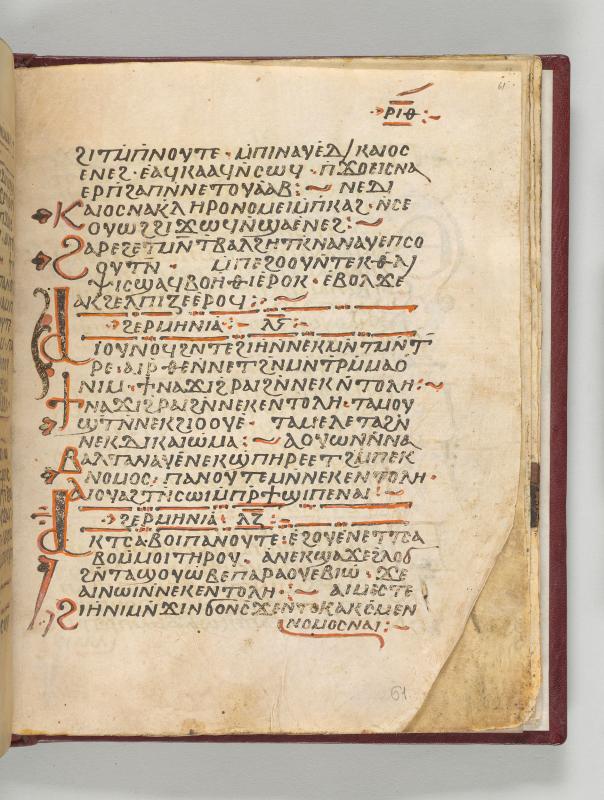 61
ⲣⲓⲑ
ϩⲓⲧⲙⲡⲛⲟⲩⲧⲉ · ⲙⲡⲓⲛⲁⲩⲉⲇⲓⲕⲁⲓⲟⲥ
ⲉⲛⲉϩ · ⲉⲁϥⲕⲁⲁϥⲛⲥⲱϥ · ⲡϫⲟⲉⲓⲥⲛⲁ
ⲉⲣⲡϩⲁⲡⲛⲛⲉⲧⲟⲩⲁⲁⲃ :~ ⲛⲉⲇⲓ
ⲕⲁⲓⲟⲥⲛⲁⲕⲗⲏⲣⲟⲛⲟⲙⲉⲓⲙⲡⲕⲁϩ · ⲛⲥⲉ
ⲟⲩⲱϩϩⲓϫⲱϥⲛϣⲁⲉⲛⲉϩ :~
ϩⲁⲣⲉϩⲉⲧⲙⲛⲧⲃⲁⲗϩⲏⲧⲕⲛⲁⲛⲁⲩⲉⲡⲥⲟ
ⲟⲩⲧⲛ · ⲙⲡⲉϩⲟⲟⲩⲛⲧⲉⲕⲑⲗⲓ
ⲯⲓⲥϣⲁϥⲃⲟⲏⲑⲓⲉⲣⲟⲕ · ⲉⲃⲟⲗϫⲉ
ⲁⲕϩⲉⲗⲡⲓⲍⲉⲉⲣⲟϥ :~
ϩⲉⲣⲙⲏⲛⲓⲁ :~ ⲗⲋ
ⲁⲓⲟⲩⲛⲟϥϩⲛⲧⲉϩⲓⲏⲛⲛⲉⲕⲙⲛⲧⲙⲛⲧ
ⲣⲉ · ⲁⲓⲣⲑⲉⲛⲛⲉⲧϩⲛⲙⲛⲧⲣⲙⲙⲁⲟ
ⲛⲓⲙ · ϯⲛⲁϫⲓϩⲣⲁⲓϩⲛⲛⲉⲕⲛⲧⲟⲗⲏ :~
ϯⲛⲁϫⲓϩⲣⲁⲓϩⲛⲛⲉⲕⲉⲛⲧⲟⲗⲏ · ⲧⲁⲙⲟⲩ
ϣⲧⲛⲛⲉⲕϩⲓⲟⲟⲩⲉ · ⲧⲁⲙⲉⲗⲉⲧⲁϩⲛ
ⲛⲉⲕⲇⲓⲕⲁⲓⲱⲙⲁ :~ ⲁⲟⲩⲱⲛⲛⲛⲁ
ⲃⲁⲗⲧⲁⲛⲁⲩⲉⲛⲉⲕϣⲡⲏⲣⲉⲉⲧϩⲙⲡⲉⲕ
ⲛⲟⲙⲟⲥ · ⲡⲁⲛⲟⲩⲧⲉⲙⲛⲛⲉⲕⲉⲛⲧⲟⲗⲏ ·
ⲁⲓⲟⲩⲁϩⲧⲏⲥⲱⲓⲙⲡⲣϯϣⲓⲡⲉⲛⲁⲓ :~
ϩⲉⲣⲙⲏⲛⲓⲁ ⲗⲍ
ⲁⲕⲧⲥⲁⲃⲟⲓⲡⲁⲛⲟⲩⲧⲉ : ⲉϩⲟⲩⲉⲛⲉⲧⲧⲥⲁ
ⲃⲟⲙⲙⲟⲓⲧⲏⲣⲟⲩ · ⲁⲛⲉⲕϣⲁϫⲉϩⲗⲟϭ
ϩⲛⲧⲁϣⲟⲩⲱⲃⲉⲡⲁⲣⲁⲟⲩⲉⲃⲓⲱ · ϫⲉ
ⲁⲓⲛⲱⲓⲛⲛⲉⲕⲉⲛⲧⲟⲗⲏ :~ ⲁⲓⲙⲉⲥⲧⲉ
ϩⲓⲏⲛⲓⲙⲛϫⲓⲛϭⲟⲛⲥϫⲉⲛⲧⲟⲕⲁⲕⲥⲙⲉⲛ
ⲛⲟⲙⲟⲥⲛⲁⲓ :~
61